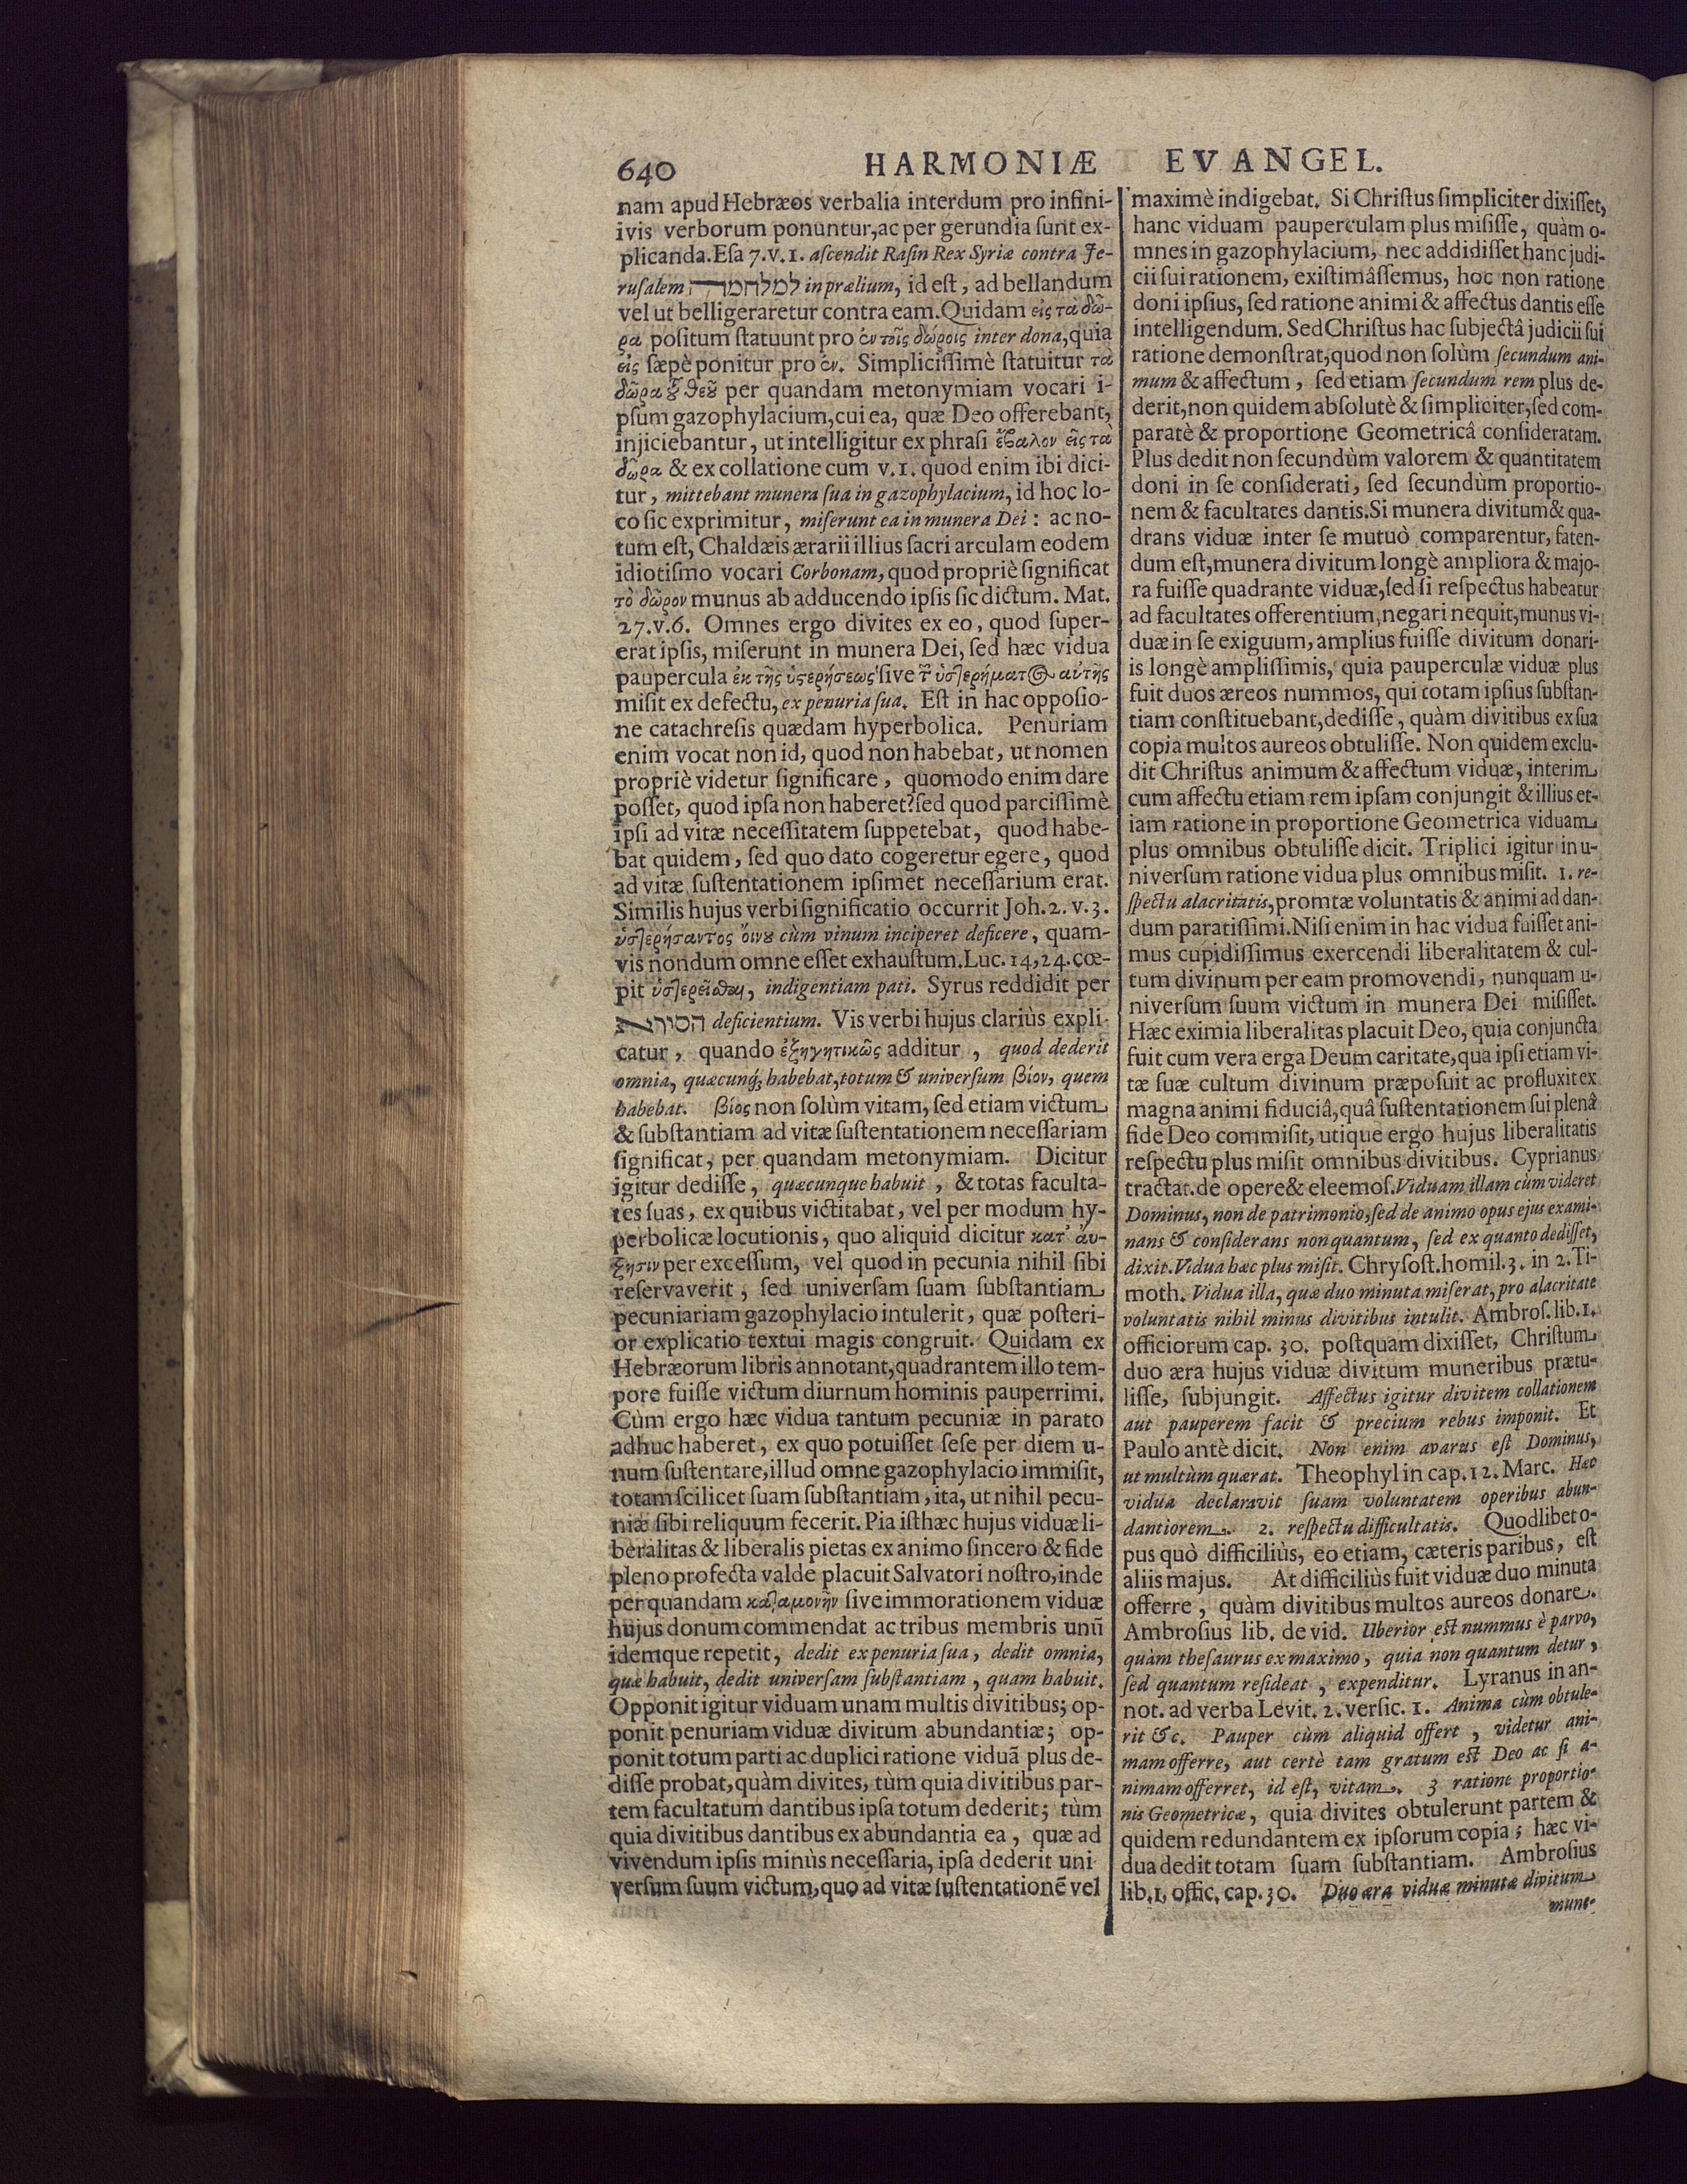 640 HARMONIÆ EVANGEL.
nam apud Hebræos verbalia interdum pro infini-
ivis verborum ponuntur, ac per gerundia ſunt ex-
plicanda. Eſa 7. v. 1. aſcendit Raſin Rex Syriæ contra Je-
ruſalem למלחמה in prælium, id eſt, ad bellandum
vel ut belligeraretur contra eam. Quidam εἰς τὰ δῶ-
ρα poſitum ſtatuunt pro ἐν τοῖς δώροις inter dona, quia
εἰς ſæpè ponitur pro ἐν. Simpliciſſimè ſtatuitur τὰ
δῶρα τȣ͂ θεȣ͂ per quandam metonymiam vocari i-
pſum gazophylacium, cui ea, quæ Deo offerebant,
injiciebantur, ut intelligitur ex phraſi ἔβαλον εἰς τὰ
δῶρα & ex collatione cum v. 1. quod enim ibi dici-
tur, mittebant munera ſua in gazophylacium, id hoc lo-
co ſic exprimitur, miſerunt ea in munera Dei: ac no-
tum eſt, Chaldæis ærarii illius ſacri arculam eodem
idiotiſmo vocari Corbonam, quod propriè ſignificat
τὸ δῶρον munus ab adducendo ipſis ſic dictum. Mat.
27. v. 6. Omnes ergo divites ex eo, quod ſuper-
erat ipſis, miſerunt in munera Dei, ſed hæc vidua
paupercula ἐκ τῆς ὑϛερήσεως ſive τȣ͂ ὑστερήματος αὐτῆς
miſit ex defectu, ex penuria ſua. Eſt in hac oppoſio-
ne catachreſis quædam hyperbolica. Penuriam
enim vocat non id, quod non habebat, ut nomen
propriè videtur ſignificare, quomodo enim dare
poſſet, quod ipſa non haberet? ſed quod parciſſimè
ipſi ad vitæ neceſſitatem ſuppetebat, quod habe-
bat quidem, ſed quo dato cogeretur egere, quod
ad vitæ ſuſtentationem ipſimet neceſſarium erat.
Similis hujus verbi ſignificatio occurrit Joh. 2. v. 3.
ὑστερήσαντος οἴνȣ cùm vinum inciperet deficere, quam-
vis nondum omne eſſet exhauſtum. Luc. 14, 24. cœ-
pit ὑστερεῖσθαι, indigentiam pati. Syrus reddidit per
חסירא deficientium. Vis verbi hujus clariùs expli-
catur, quando ἐξηγητικῶς additur, quod dederit
omnia, quæcunq́; habebat, totum & univerſum βίον, quem
habebat. βίος non ſolùm vitam, ſed etiam victum
& ſubſtantiam ad vitæ ſuſtentationem neceſſariam
ſignificat, per quandam metonymiam. Dicitur
igitur dediſſe, quæcunque habuit, & totas faculta-
tes ſuas, ex quibus victitabat, vel per modum hy-
perbolicæ locutionis, quo aliquid dicitur κατ' αὔ-
ξησιν per exceſſum, vel quod in pecunia nihil ſibi
reſervaverit, ſed univerſam ſuam ſubſtantiam
pecuniariam gazophylacio intulerit, quæ poſteri-
or explicatio textui magis congruit. Quidam ex
Hebræorum libris annotant, quadrantem illo tem-
pore fuiſſe victum diurnum hominis pauperrimi.
Cùm ergo hæc vidua tantum pecuniæ in parato
adhuc haberet, ex quo potuiſſet ſeſe per diem u-
num ſuſtentare, illud omne gazophylacio immiſit,
totam ſcilicet ſuam ſubſtantiam, ita, ut nihil pecu-
niæ ſibi reliquum fecerit. Pia iſthæc hujus viduæ li-
beralitas & liberalis pietas ex animo ſincero & fide
pleno profecta valde placuit Salvatori noſtro, inde
per quandam καταμονὴν ſive immorationem viduæ
hujus donum commendat ac tribus membris unū
idemque repetit, dedit ex penuria ſua, dedit omnia,
quæ habuit, dedit univerſam ſubſtantiam, quam habuit.
Opponit igitur viduam unam multis divitibus; op-
ponit penuriam viduæ divitum abundantiæ; op-
ponit totum parti ac duplici ratione viduā plus de-
diſſe probat, quàm divites, tùm quia divitibus par-
tem facultatum dantibus ipſa totum dederit; tùm
quia divitibus dantibus ex abundantia ea, quæ ad
vivendum ipſis minùs neceſſaria, ipſa dederit uni
verſum ſuum victum, quo ad vitæ ſuſtentationē vel
maximè indigebat. Si Chriſtus ſimpliciter dixiſſet,
hanc viduam pauperculam plus miſiſſe, quàm o-
mnes in gazophylacium, nec addidiſſet hanc judi-
cii ſui rationem, exiſtimâſſemus, hoc non ratione
doni ipſius, ſed ratione animi & affectus dantis eſſe
intelligendum. Sed Chriſtus hac ſubjectâ judicii ſui
ratione demonſtrat, quod non ſolùm ſecundum ani-
mum & affectum, ſed etiam ſecundum rem plus de-
derit, non quidem abſolutè & ſimpliciter, ſed com-
paratè & proportione Geometricâ conſideratam.
Plus dedit non ſecundùm valorem & quantitatem
doni in ſe conſiderati, ſed ſecundùm proportio-
nem & facultates dantis. Si munera divitum & qua-
drans viduæ inter ſe mutuò comparentur, faten-
dum eſt, munera divitum longè ampliora & majo-
ra fuiſſe quadrante viduæ, ſed ſi reſpectus habeatur
ad facultates offerentium, negari nequit, munus vi-
duæ in ſe exiguum, amplius fuiſſe divitum donari-
is longè ampliſſimis, quia pauperculæ viduæ plus
fuit duos æreos nummos, qui totam ipſius ſubſtan-
tiam conſtituebant, dediſſe, quàm divitibus ex ſua
copia multos aureos obtuliſſe. Non quidem exclu-
dit Chriſtus animum & affectum viduæ, interim
cum affectu etiam rem ipſam conjungit & illius et-
iam ratione in proportione Geometrica viduam
plus omnibus obtuliſſe dicit. Triplici igitur in u-
niverſum ratione vidua plus omnibus miſit. 1. re-
ſpectu alacritatis, promtæ voluntatis & animi ad dan-
dum paratiſſimi. Niſi enim in hac vidua fuiſſet ani-
mus cupidiſſimus exercendi liberalitatem & cul-
tum divinum per eam promovendi, nunquam u-
niverſum ſuum victum in munera Dei miſiſſet.
Hæc eximia liberalitas placuit Deo, quia conjuncta
fuit cum vera erga Deum caritate, qua ipſi etiam vi-
tæ ſuæ cultum divinum præpoſuit ac profluxit ex
magna animi fiduciâ, quâ ſuſtentationem ſui plenâ
fide Deo commiſit, utique ergo hujus liberalitatis
reſpectu plus miſit omnibus divitibus. Cyprianus
tractat. de opere & eleemoſ. Viduam illam cùm videret
Dominus, non de patrimonio, ſed de animo opus ejus exami-
nans & conſiderans non quantum, ſed ex quanto dediſſet,
dixit. Vidua hæc plus miſit. Chryſoſt. homil. 3. in 2. Ti-
moth. Vidua illa, quæ duo minuta miſerat, pro alacritate
voluntatis nihil minus divitibus intulit. Ambroſ. lib. 1.
officiorum cap. 30. poſtquam dixiſſet, Chriſtum
duo æra hujus viduæ divitum muneribus prætu-
liſſe, ſubjungit. Affectus igitur divitem collationem
aut pauperem facit & precium rebus imponit. Et
Paulo antè dicit. Non enim avarus eſt Dominus,
ut multùm quærat. Theophyl in cap. 12. Marc. Hæc
vidua declaravit ſuam voluntatem operibus abun-
dantiorem. 2. reſpectu difficultatis. Quodlibet o-
pus quò difficiliùs, eo etiam, cæteris paribus, eſt
aliis majus. At difficiliùs fuit viduæ duo minuta
offerre, quàm divitibus multos aureos donare.
Ambroſius lib. de vid. Uberior eſt nummus è parvo,
quàm theſaurus ex maximo, quia non quantum detur,
ſed quantum reſideat, expenditur. Lyranus in an-
not. ad verba Levit. 2. verſic. 1. Anima cùm obtule-
rit &c. Pauper cùm aliquid offert, videtur ani-
mam offerre, aut certè tam gratum eſt Deo ac ſi a-
nimam offerret, id eſt, vitam. 3 ratione proportio-
nis Geometricæ, quia divites obtulerunt partem &
quidem redundantem ex ipſorum copia; hæc vi-
dua dedit totam ſuam ſubſtantiam. Ambroſius
lib. 1. offic. cap. 30. Duo æra viduæ minuta divitum
mune-